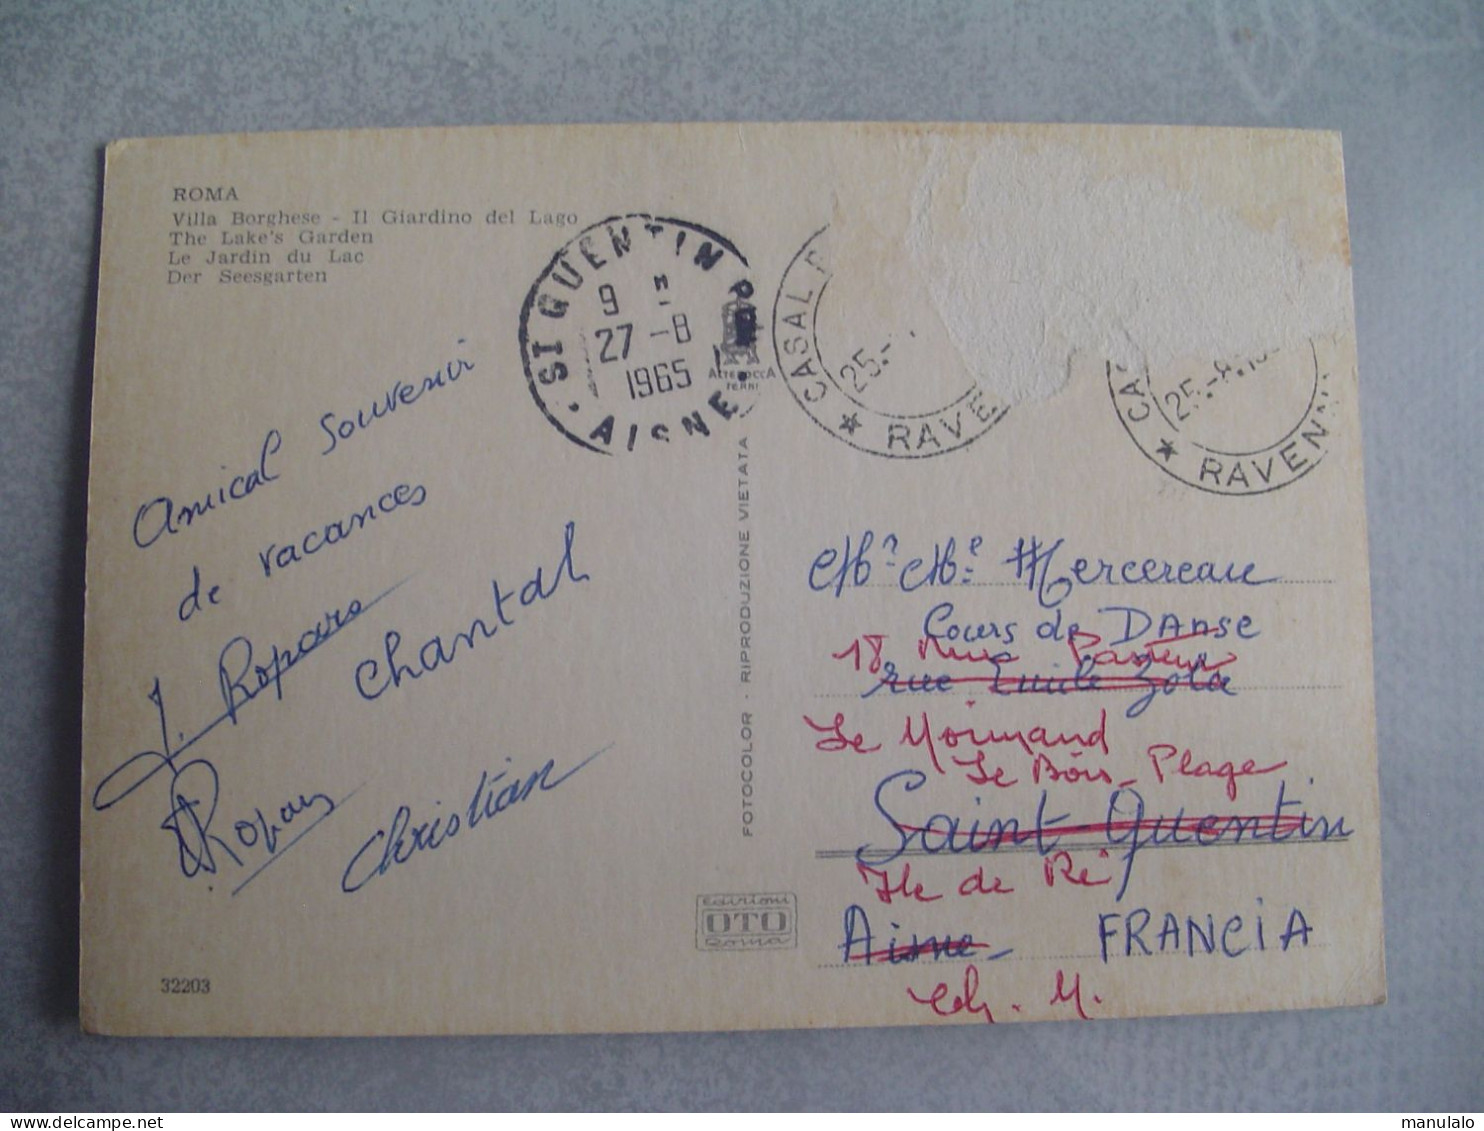 ROMA
Villa Borghese - Il Giardino del Lago
The Lake's Garden
Le Jardin du Lac
Der Seesgarten
ST QUENTIN PPAL
9 H
27-8
1965
AISNE
ALTEROCCA
TERNI
CASAL
25.-
RAVE
CAS
25.-8.19
RAVENN
Amical Souvenir
de vacances
J. Ropars
Chantal
Ropars
Christian
FOTOCOLOR - RIPRODUZIONE VIETATA
Edizioni
OTO
Roma
32203
Mr Me Mercereau
Cours de DANSE
18 Rue Pasteur
rue Emile Zola
Le Normand
Le Bois-Plage
Saint-Quentin
Ile de Ré
Aisne- FRANCIA
Ch. M.
www.delcampe.net
manulalo